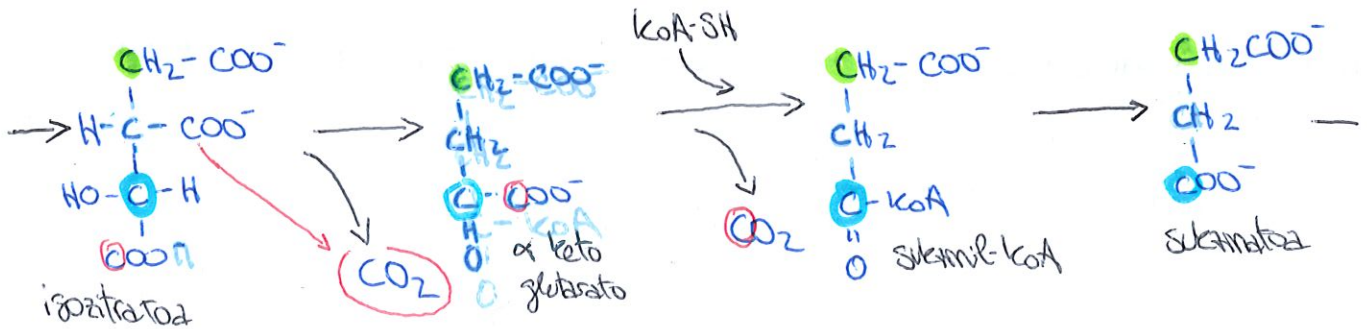 KoA-SH
CH₂-COO⁻
H-C-COO⁻
HO-C-H
COO
izozitratoa
CO₂
CH₂-COO⁻
CH₂
C-COO⁻
O
α keto
glutarato
CO₂
CH₂-COO⁻
CH₂
C-KoA
O
sukzinil-KoA
CH₂COO⁻
CH₂
COO⁻
sukzinatoa